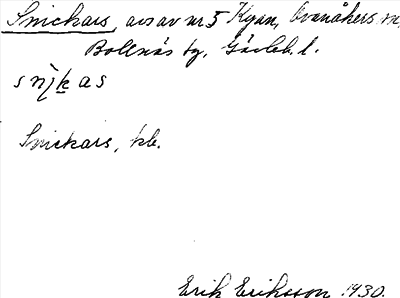 Snickars, avs av nr 5 Kyan, Ovanåkers sn,
Bollnäs tg, Gävleb. l.
snikas
Snickars, kb.
Erik Eriksson 1930.